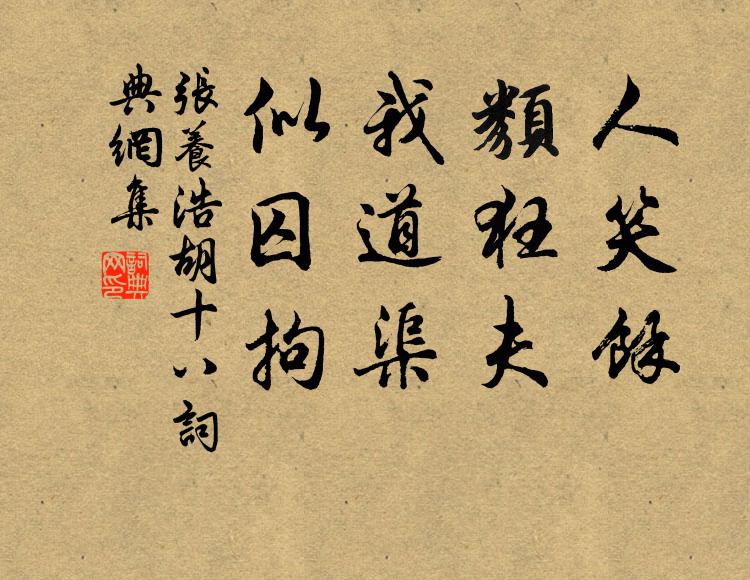 人笑餘
類狂夫
我道渠
似囚拘
張養浩胡十八詞
典網集
詞典網印